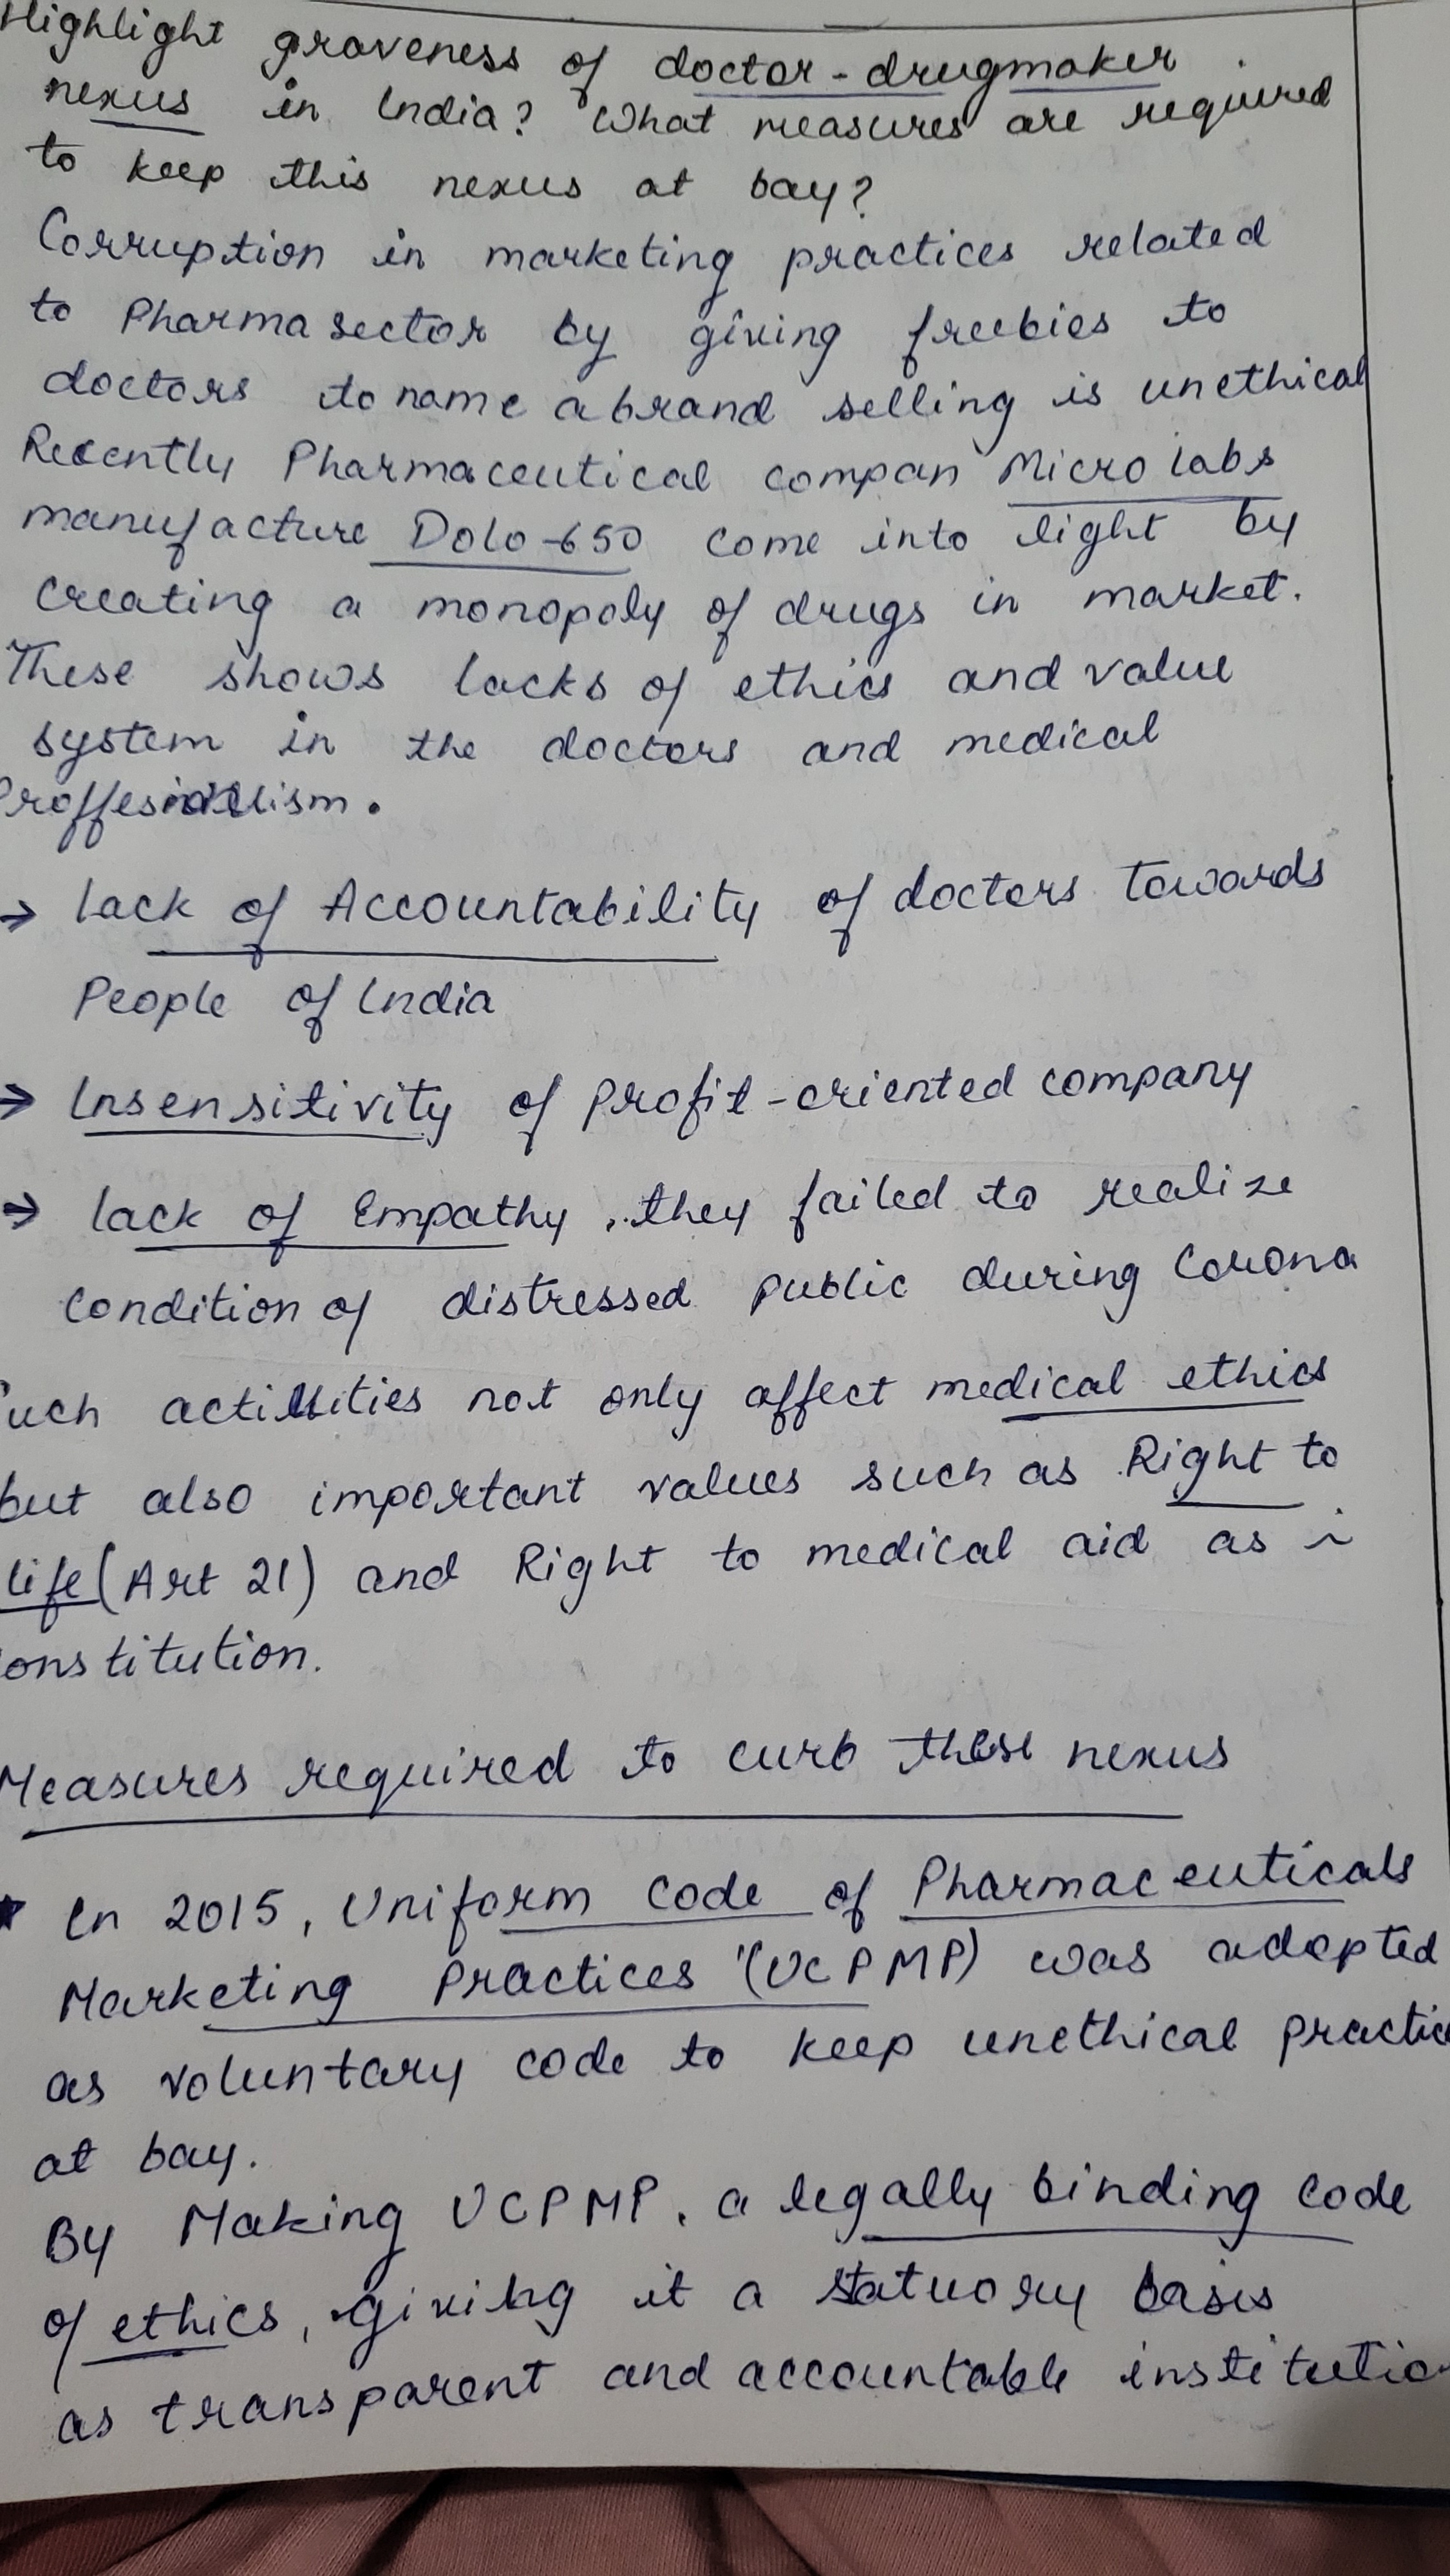 Highlight graveness of doctor-drugmaker
nexus in India? What measures are required
to keep this nexus at bay?
Corruption in marketing practices related
to Pharma sector by giving freebies to
doctors to name a brand selling is unethical
Recently Pharmaceutical compan Micro labs
manufacture Dolo-650 come into light by
creating a monopoly of drugs in market.
These shows lacks of ethics and value
system in the doctors and medical
Proffesionalism.
→ lack of Accountability of doctors towards
People of India
→ Insensitivity of profit-oriented company
→ lack of Empathy, they failed to realize
condition of distressed public during Corona
uch activities not only affect medical ethics
but also important values such as Right to
life (Art 21) and Right to medical aid as i
onstitution.
Measures required to curb these nexus
* In 2015, Uniform Code of Pharmaceuticals
Marketing Practices (UCPMP) was adopted
as voluntary code to keep unethical practic
at bay.
By Making UCPMP, a legally binding code
of ethics, giving it a statuory basis
as transparent and accountable institutio